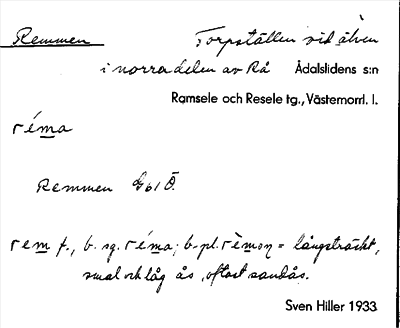 Remmen Torpställen vid älven
i norra delen av Rå Ådalslidens s:n
Ramsele och Resele tg., Västernorrl. l.
réma
Remmen 61 Ö.
rem f., b. sg. réma; b. pl. rèmoṇ = långsträckt,
smal och låg ås, oftast sandås.
Sven Hiller 1933